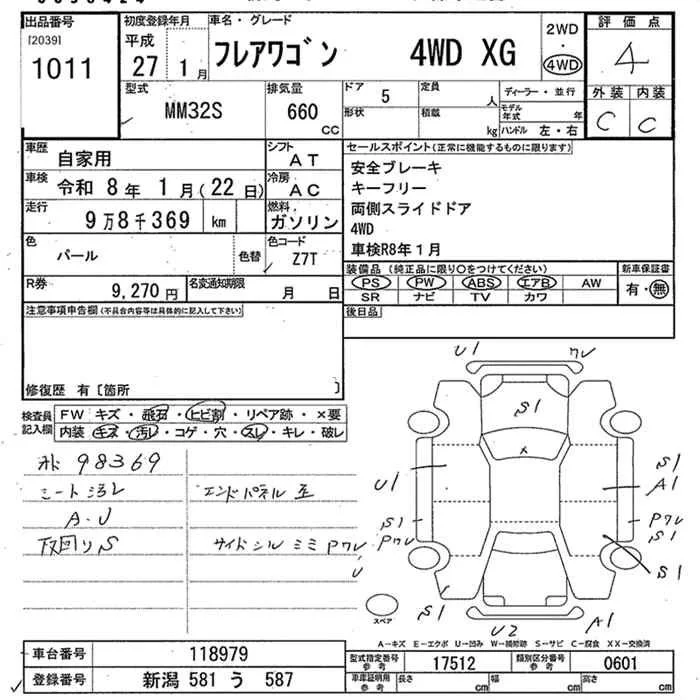 出品番号
[2039]
1011
初度登録年月
平成
27 1 月
車名・グレード
フレアワゴン 4WD XG
2WD
・
4WD
評価点
4
外装 内装
C C
型式
MM32S
排気量
660 CC
ドア 5
形状
定員
人
積載
kg
ディーラー・並行
モデル年式 年
ハンドル 左・右
車歴
自家用
シフト
AT
車検
令和 8年 1月(22日)
冷房
AC
走行
9万8千369 km
燃料
ガソリン
色
パール
色替
色コード
Z7T
R券
9,270 円
名変通知期限
月 日
セールスポイント(正常に機能するものに限ります)
安全ブレーキ
キーフリー
両側スライドドア
4WD
車検R8年1月
装備品(純正品に限り○をつけてください)
PS PW ABS エアB AW
SR ナビ TV カワ
新車保証書
有・無
後日品
注意事項申告欄(不具合内容等は具体的に記入して下さい)
修復歴 有[箇所 ]
検査員記入欄
FW キズ・飛石・ヒビ割・リペア跡・×要
内装 キズ・汚レ・コゲ・穴・スレ・キレ・破レ
98369
シート汚レ
エンドパネル
A・U
下回りS
サイドシル ミミ Pワレ
U
U1
ワレ
S1
×
U1
S1
A1
S1
Pワレ
Pワレ
S1
S1
S1
U2
A1
スペア
A-キズ E-エクボ U-凹み W-補修跡 S-サビ C-腐食 XX-交換済
車台番号
118979
登録番号
新潟 581 う 587
型式指定番号
参考
17512
類別区分番号
参考
0601
車庫証明用
参考
長さ cm
幅 cm
高さ cm